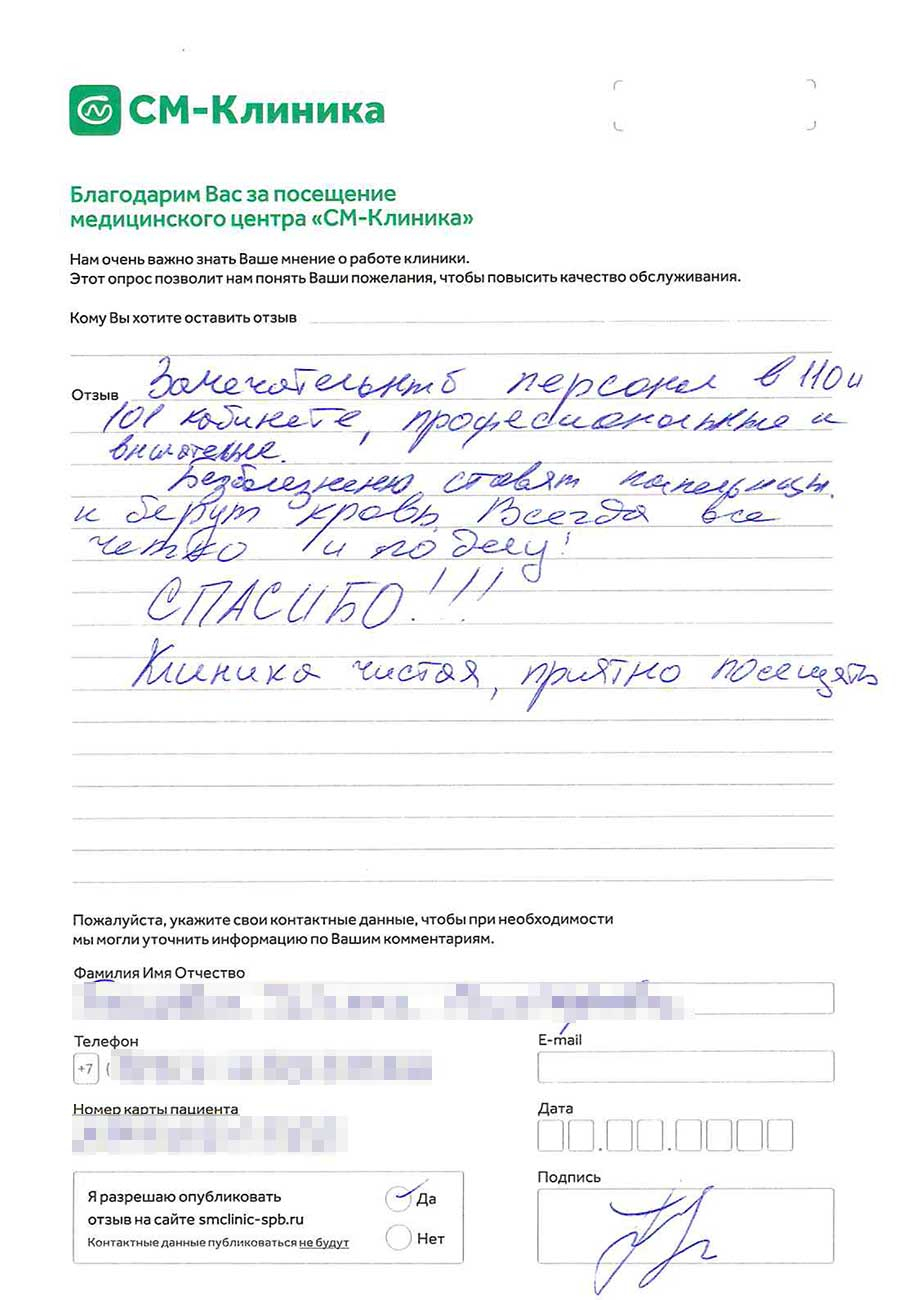 СМ-Клиника
Благодарим Вас за посещение
медицинского центра «СМ-Клиника»
Нам очень важно знать Ваше мнение о работе клиники.
Этот опрос позволит нам понять Ваши пожелания, чтобы повысить качество обслуживания.
Кому Вы хотите оставить отзыв
Отзыв Замечательный персонал в 110 и
101 кабинете, професиональные и
внимательные.
Безболезненно ставят капельницы
и берут кровь. Всегда все
четко и по делу!
СПАСИБО!!!
Клиника чистая, приятно посещать
Пожалуйста, укажите свои контактные данные, чтобы при необходимости
мы могли уточнить информацию по Вашим комментариям.
Фамилия Имя Отчество
Телефон
E-mail
+7 (
Номер карты пациента
Дата
Подпись
Я разрешаю опубликовать
отзыв на сайте smclinic-spb.ru
Контактные данные публиковаться не будут
Да
Нет